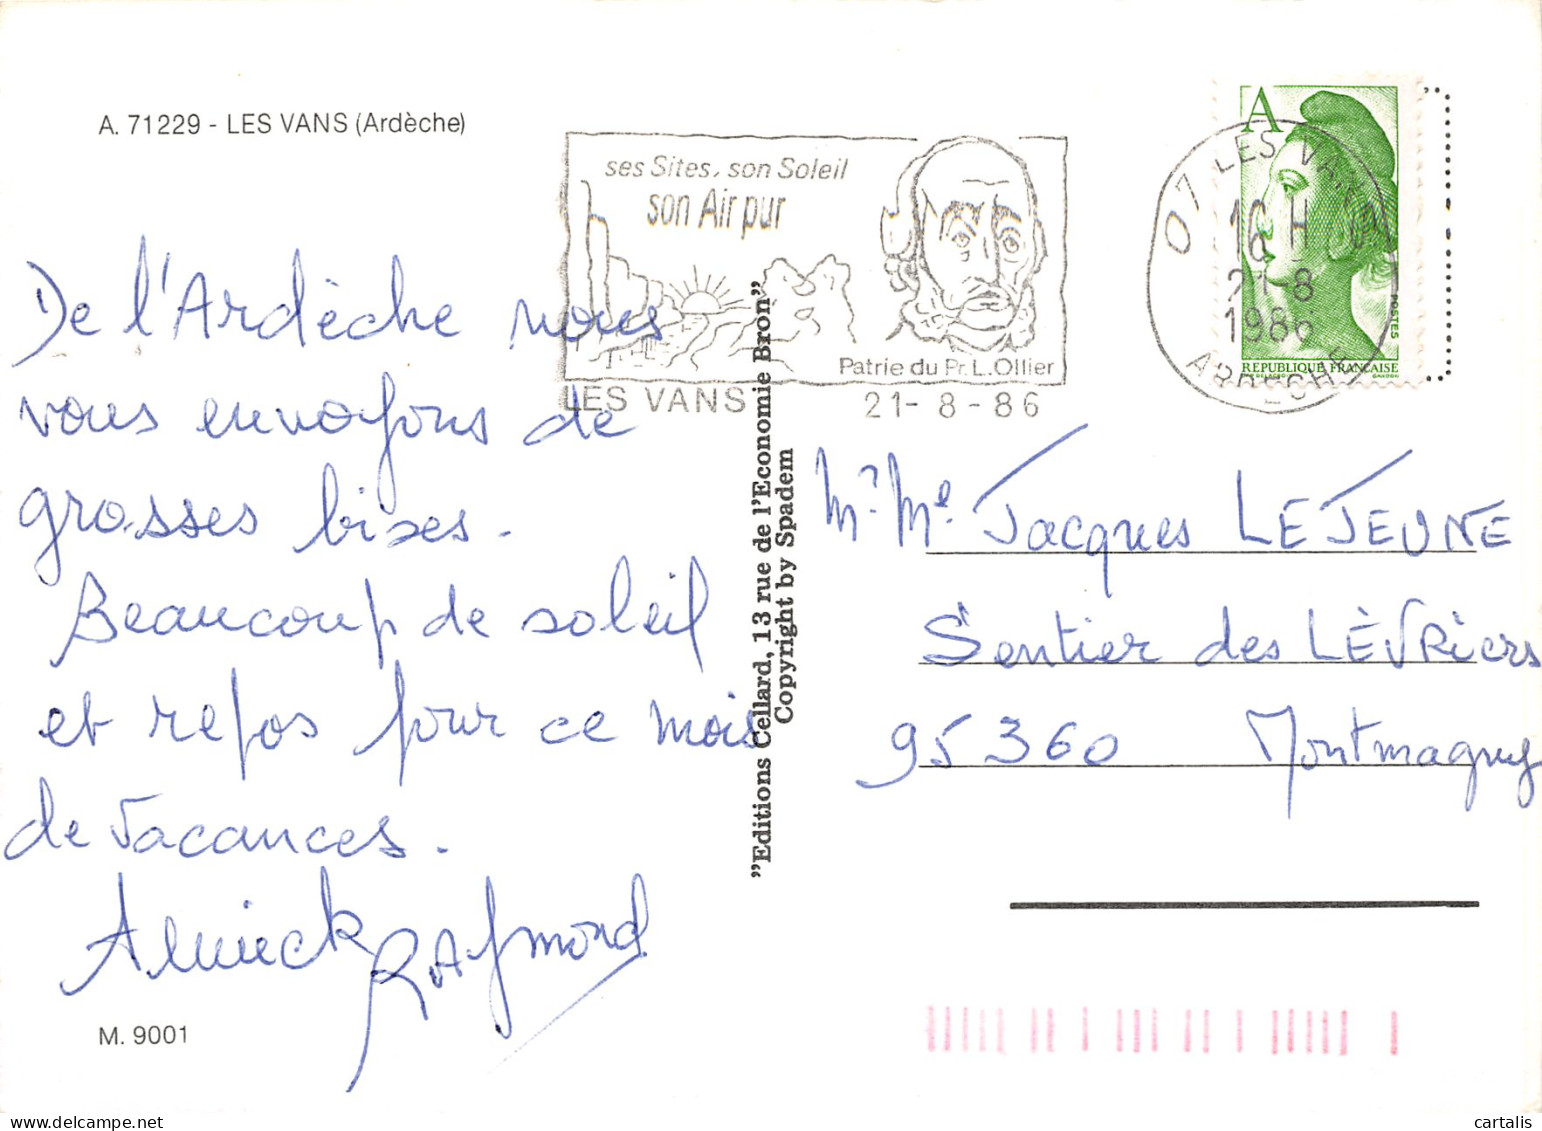 A. 71229 - LES VANS (Ardèche)
ses Sites, son Soleil
son Air pur
Patrie du Pr. L. Ollier
LES VANS
21- 8 - 86
07 LES VANS
16 H
21-8
1986
ARDECHE
A
POSTES
REPUBLIQUE FRANCAISE
De l'Ardèche nous
vous envoyons de
grosses bises.
Beaucoup de soleil
et repos pour ce mois
de vacances.
Annick Raymond
M. 9001
"Editions Cellard, 13 rue de l'Economie Bron"
Copyright by Spadem
Mr Me Jacques LEJEUNE
Sentier des LÈVRiers
95360 Montmagny
cartalis